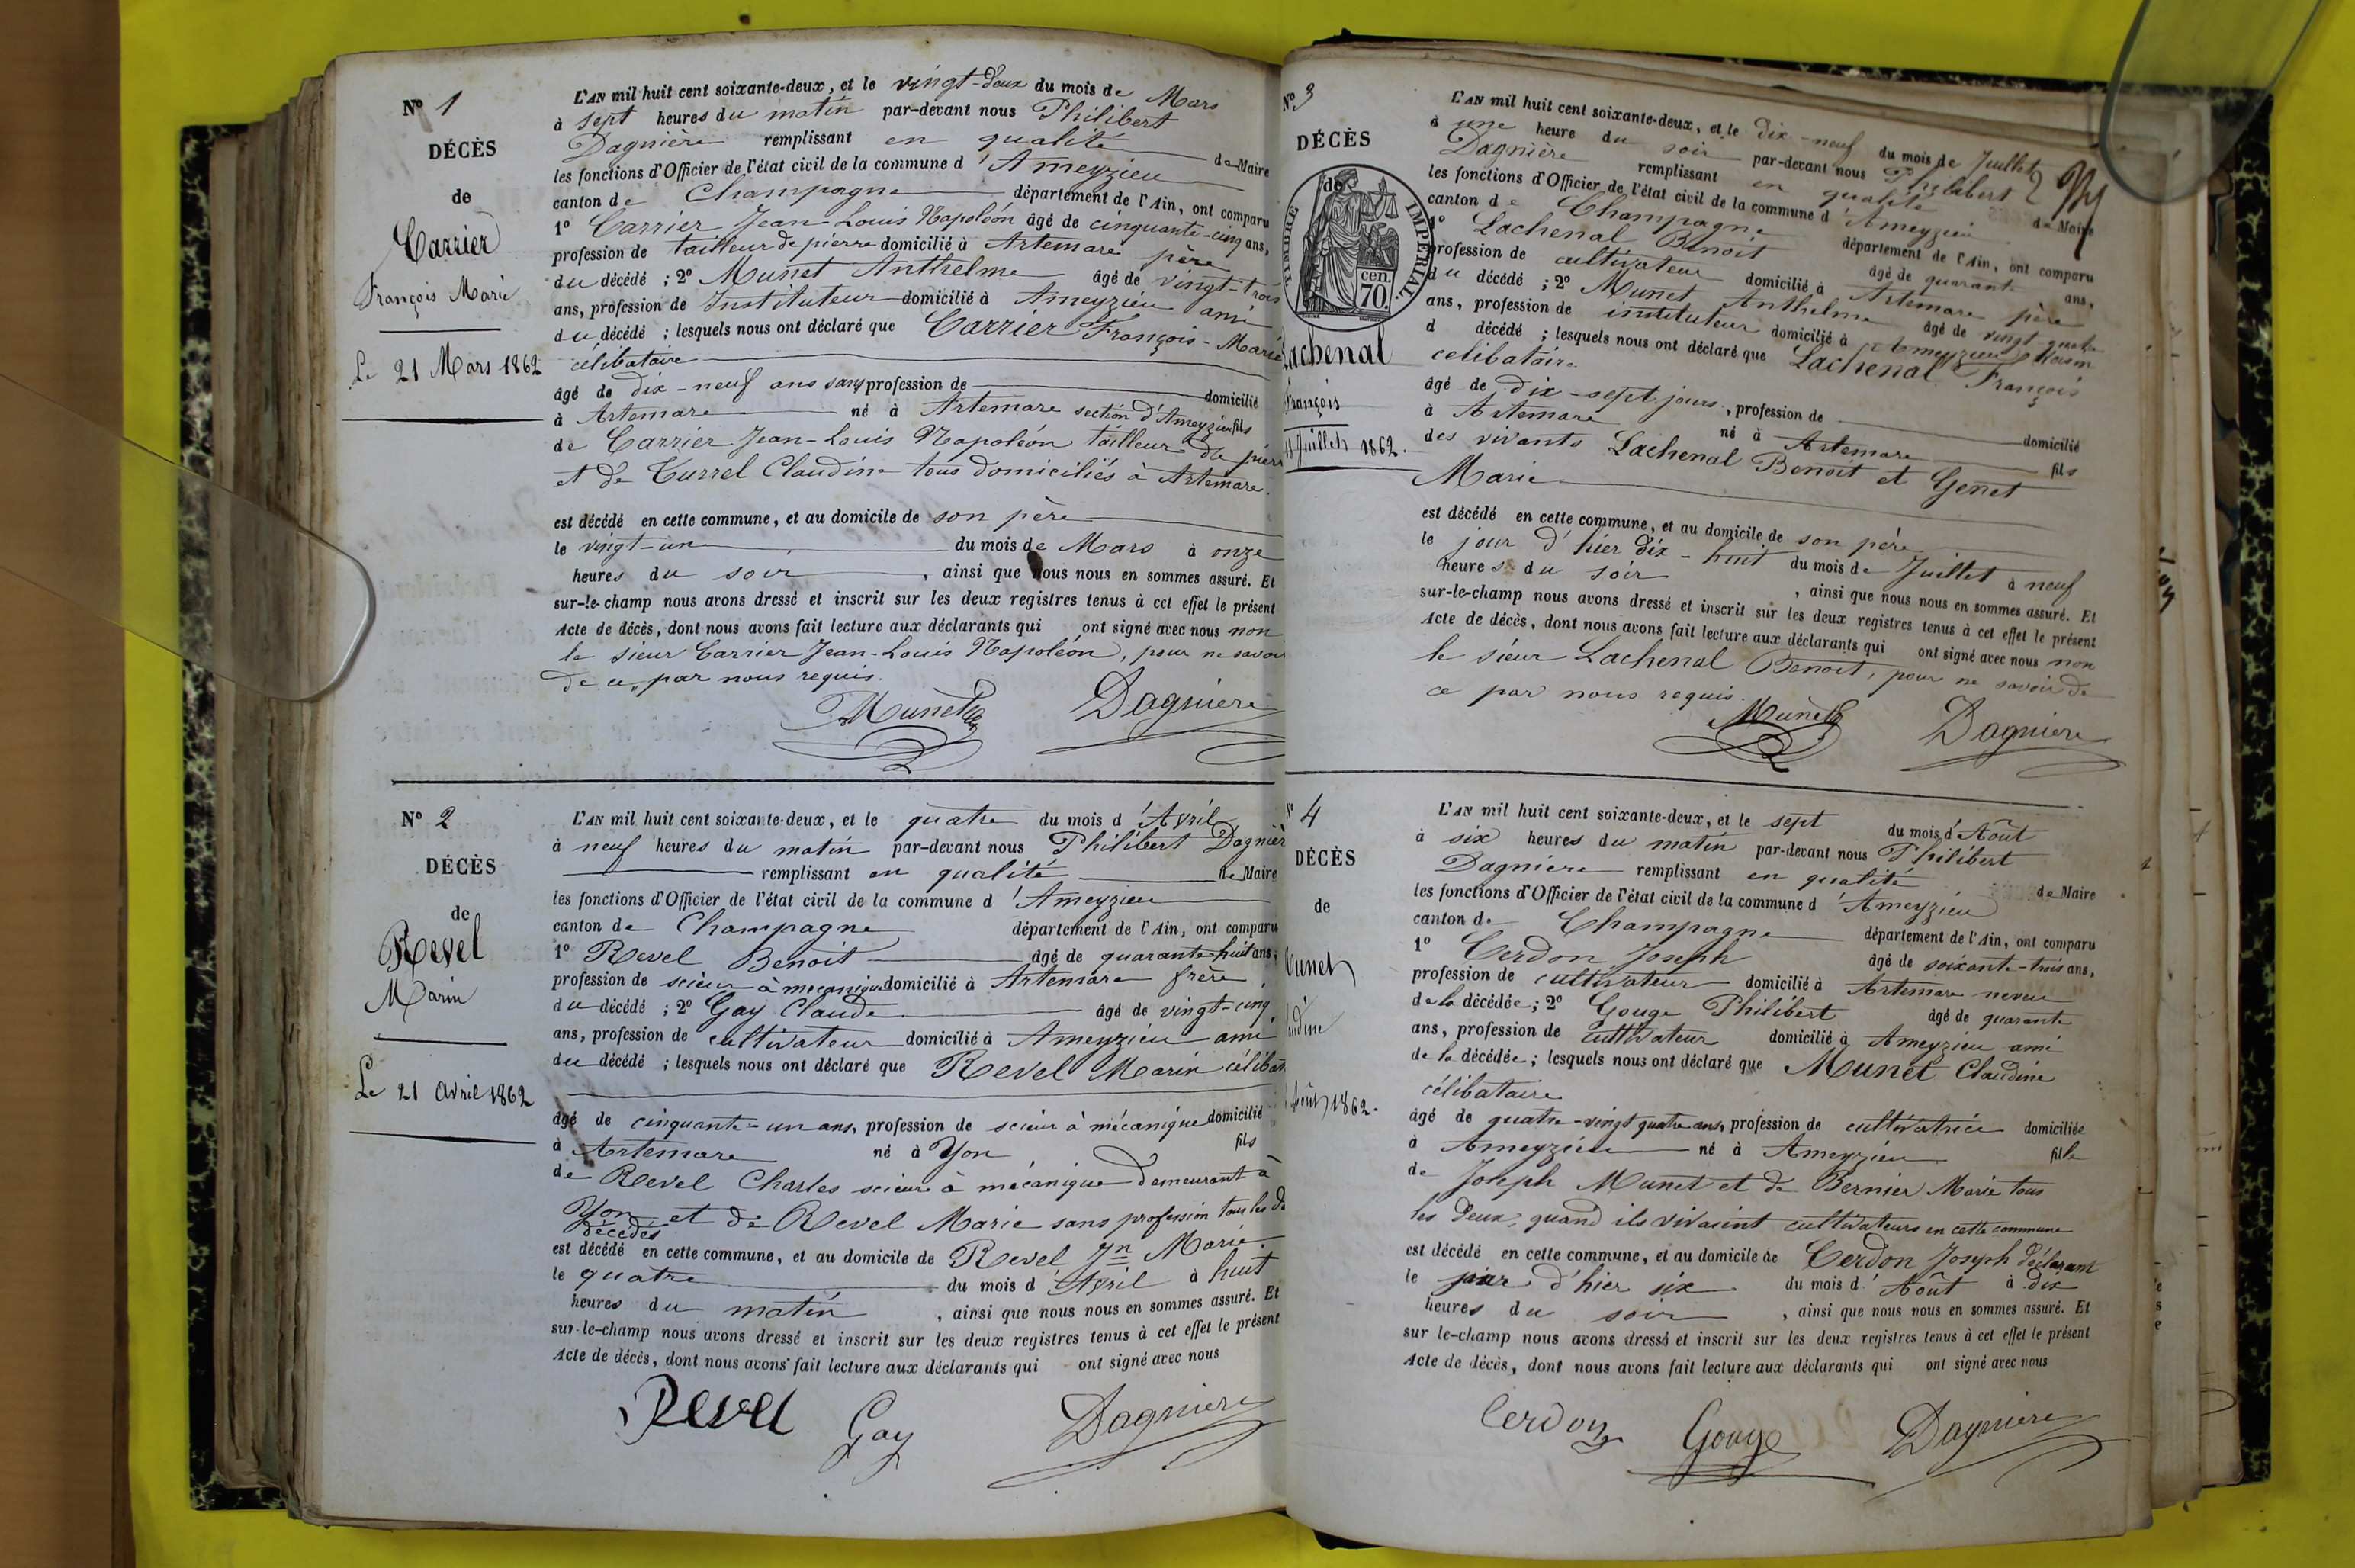 N° 1
DÉCÈS
de
Carrier
François Marie
Le 21 Mars 1862
L'AN mil huit cent soixante-deux, et le vingt-deux du mois de Mars
à sept heures du matin par-devant nous Philibert
Dagnière remplissant en qualité de Maire
les fonctions d'Officier de l'état civil de la commune d'Ameyzieu
canton de Champagne département de l'Ain, ont comparu
1° Carrier Jean-Louis Napoléon âgé de cinquante-cinq ans,
profession de tailleur de pierre domicilié à Artemare père
du décédé ; 2° Munet Anthelme âgé de vingt-trois
ans, profession de Instituteur domicilié à Ameyzieu ami
du décédé ; lesquels nous ont déclaré que Carrier François-Marie
célibataire
âgé de dix-neuf ans sans profession de domicilié
à Artemare né à Artemare section d'Ameyzieu fils
de Carrier Jean-Louis Napoléon tailleur de pierre
et de Turrel Claudine tous domiciliés à Artemare.
est décédé en cette commune, et au domicile de son père
le vingt-un du mois de Mars à onze
heures du soir, ainsi que nous nous en sommes assuré. Et
sur-le-champ nous avons dressé et inscrit sur les deux registres tenus à cet effet le présent
Acte de décès, dont nous avons fait lecture aux déclarants qui ont signé avec nous non
le sieur Carrier Jean-Louis Napoléon, pour ne savoir
de ce, par nous requis.
Munet Dagnière
N° 2
DÉCÈS
de
Revel
Marin
Le 21 Avril 1862
L'AN mil huit cent soixante-deux, et le quatre du mois d'Avril
à neuf heures du matin par-devant nous Philibert Dagnière
remplissant en qualité de Maire
les fonctions d'Officier de l'état civil de la commune d'Ameyzieu
canton de Champagne département de l'Ain, ont comparu
1° Revel Benoit âgé de quarante-huit ans,
profession de scieur à mécanique domicilié à Artemare frère
du décédé ; 2° Gay Claude âgé de vingt-cinq
ans, profession de cultivateur domicilié à Ameyzieu ami
du décédé ; lesquels nous ont déclaré que Revel Marin
âgé de cinquante-un ans, profession de scieur à mécanique domicilié
à Artemare né à Yon fils
de Revel Charles scieur à mécanique demeurant à
Yon et de Revel Marie sans profession tous les
décédés
est décédé en cette commune, et au domicile de Revel Jn Marie.
le quatre du mois d'Avril à huit
heures du matin, ainsi que nous nous en sommes assuré. Et
sur-le-champ nous avons dressé et inscrit sur les deux registres tenus à cet effet le présent
Acte de décès, dont nous avons fait lecture aux déclarants qui ont signé avec nous
Revel Gay Dagnière
N° 3
DÉCÈS
de
TIMBRE IMPÉRIAL
cen.
70.
Lachenal
François
Juillet 1862.
L'AN mil huit cent soixante-deux, et le dix-neuf du mois de Juillet
à une heure du soir par-devant nous Philibert
Dagnière remplissant en qualité de Maire
les fonctions d'Officier de l'état civil de la commune d'Ameyzieu
canton de Champagne département de l'Ain, ont comparu
1° Lachenal Benoit âgé de quarante ans,
profession de cultivateur domicilié à Artemare père
du décédé ; 2° Munet Anthelme âgé de vingt quatre
ans, profession de instituteur domicilié à Ameyzieu
d décédé ; lesquels nous ont déclaré que Lachenal François
celibataire
âgé de dix-sept jours, profession de domicilié
à Artemare né à Artemare fils
des vivants Lachenal Benoit et Genet
Marie
est décédé en cette commune, et au domicile de son père
le jour d'hier dix-huit du mois de Juillet à neuf
heures du soir, ainsi que nous nous en sommes assuré. Et
sur-le-champ nous avons dressé et inscrit sur les deux registres tenus à cet effet le présent
Acte de décès, dont nous avons fait lecture aux déclarants qui ont signé avec nous non
le sieur Lachenal Benoit, pour ne savoir de
ce par nous requis.
Munet Dagnière
4
DÉCÈS
de
Munet
Août 1862.
L'AN mil huit cent soixante-deux, et le sept du mois d'Août
à six heures du matin par-devant nous Philibert
Dagnière remplissant en qualité de Maire
les fonctions d'Officier de l'état civil de la commune d'Ameyzieu
canton de Champagne département de l'Ain, ont comparu
1° Cerdon Joseph âgé de soixante-trois ans,
profession de cultivateur domicilié à Artemare neveu
de la décédée ; 2° Gouge Philibert âgé de quarante
ans, profession de cultivateur domicilié à Ameyzieu ami
de la décédée ; lesquels nous ont déclaré que Munet Claudine
célibataire
âgé de quatre-vingt quatre ans, profession de cultivatrice domiciliée
à Ameyzieu né à Ameyzieu fille
de Joseph Munet et de Bernier Marie tous
les deux, quand ils vivaient cultivateurs en cette commune
est décédé en cette commune, et au domicile de Cerdon Joseph déclarant
le jour d'hier six du mois d'Août à dix
heures du soir, ainsi que nous nous en sommes assuré. Et
sur le-champ nous avons dressé et inscrit sur les deux registres tenus à cet effet le présent
Acte de décès, dont nous avons fait lecture aux déclarants qui ont signé avec nous
Cerdon Gouge Dagnière